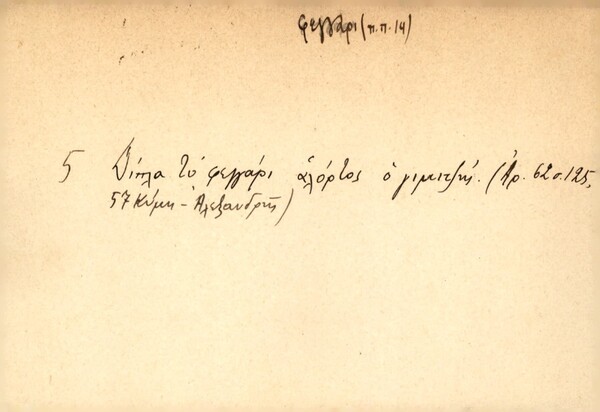 φεγγάρι (π.π. 14)
5 Δίπλα τό φεγγάρι ἀλόρτος ὁ γιμιτζῆς. (Ἀρ. 62 σ. 125,
57 Κύμη - Ἀλεξανδρῆς)